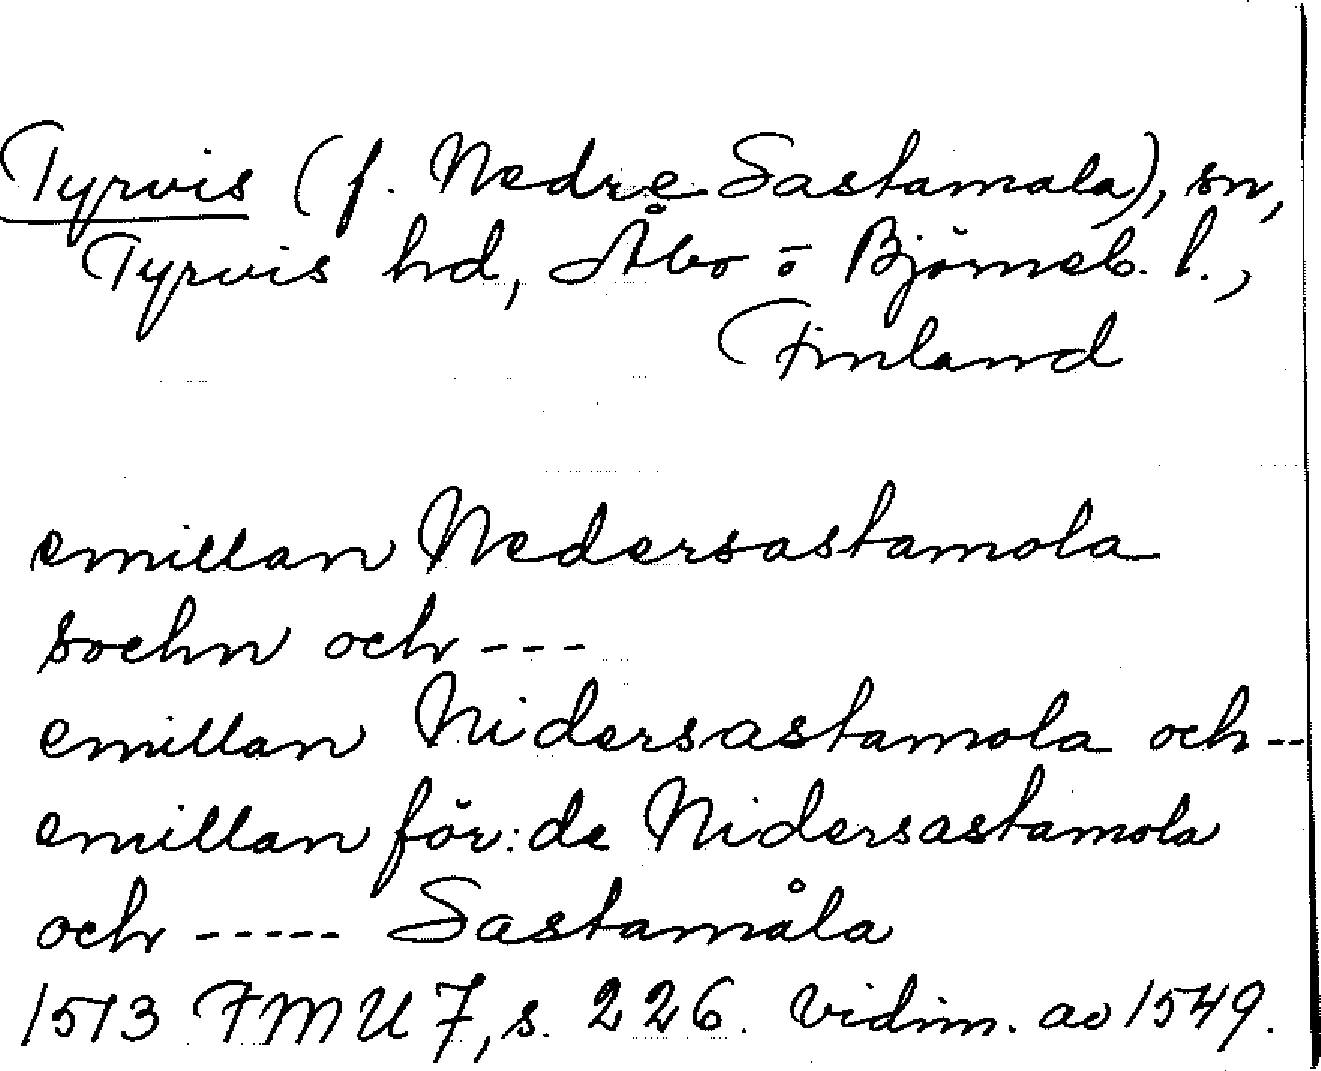 Tyrvis (f. Nedre Sastamala), sn,
Tyrvis hd, Åbo o Björneb. l.,
Finland
emillan Nedersastamola
sochn och ---
emillan Nidersastamola och --
emillan för:de Nidersastamola
och ----- Sastamåla
1513 FMU 7, s. 226. Vidim. av 1549.